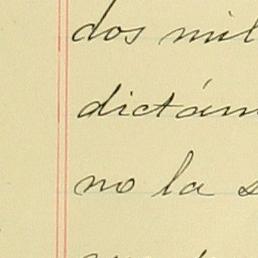 dos mil
dictám
no la s